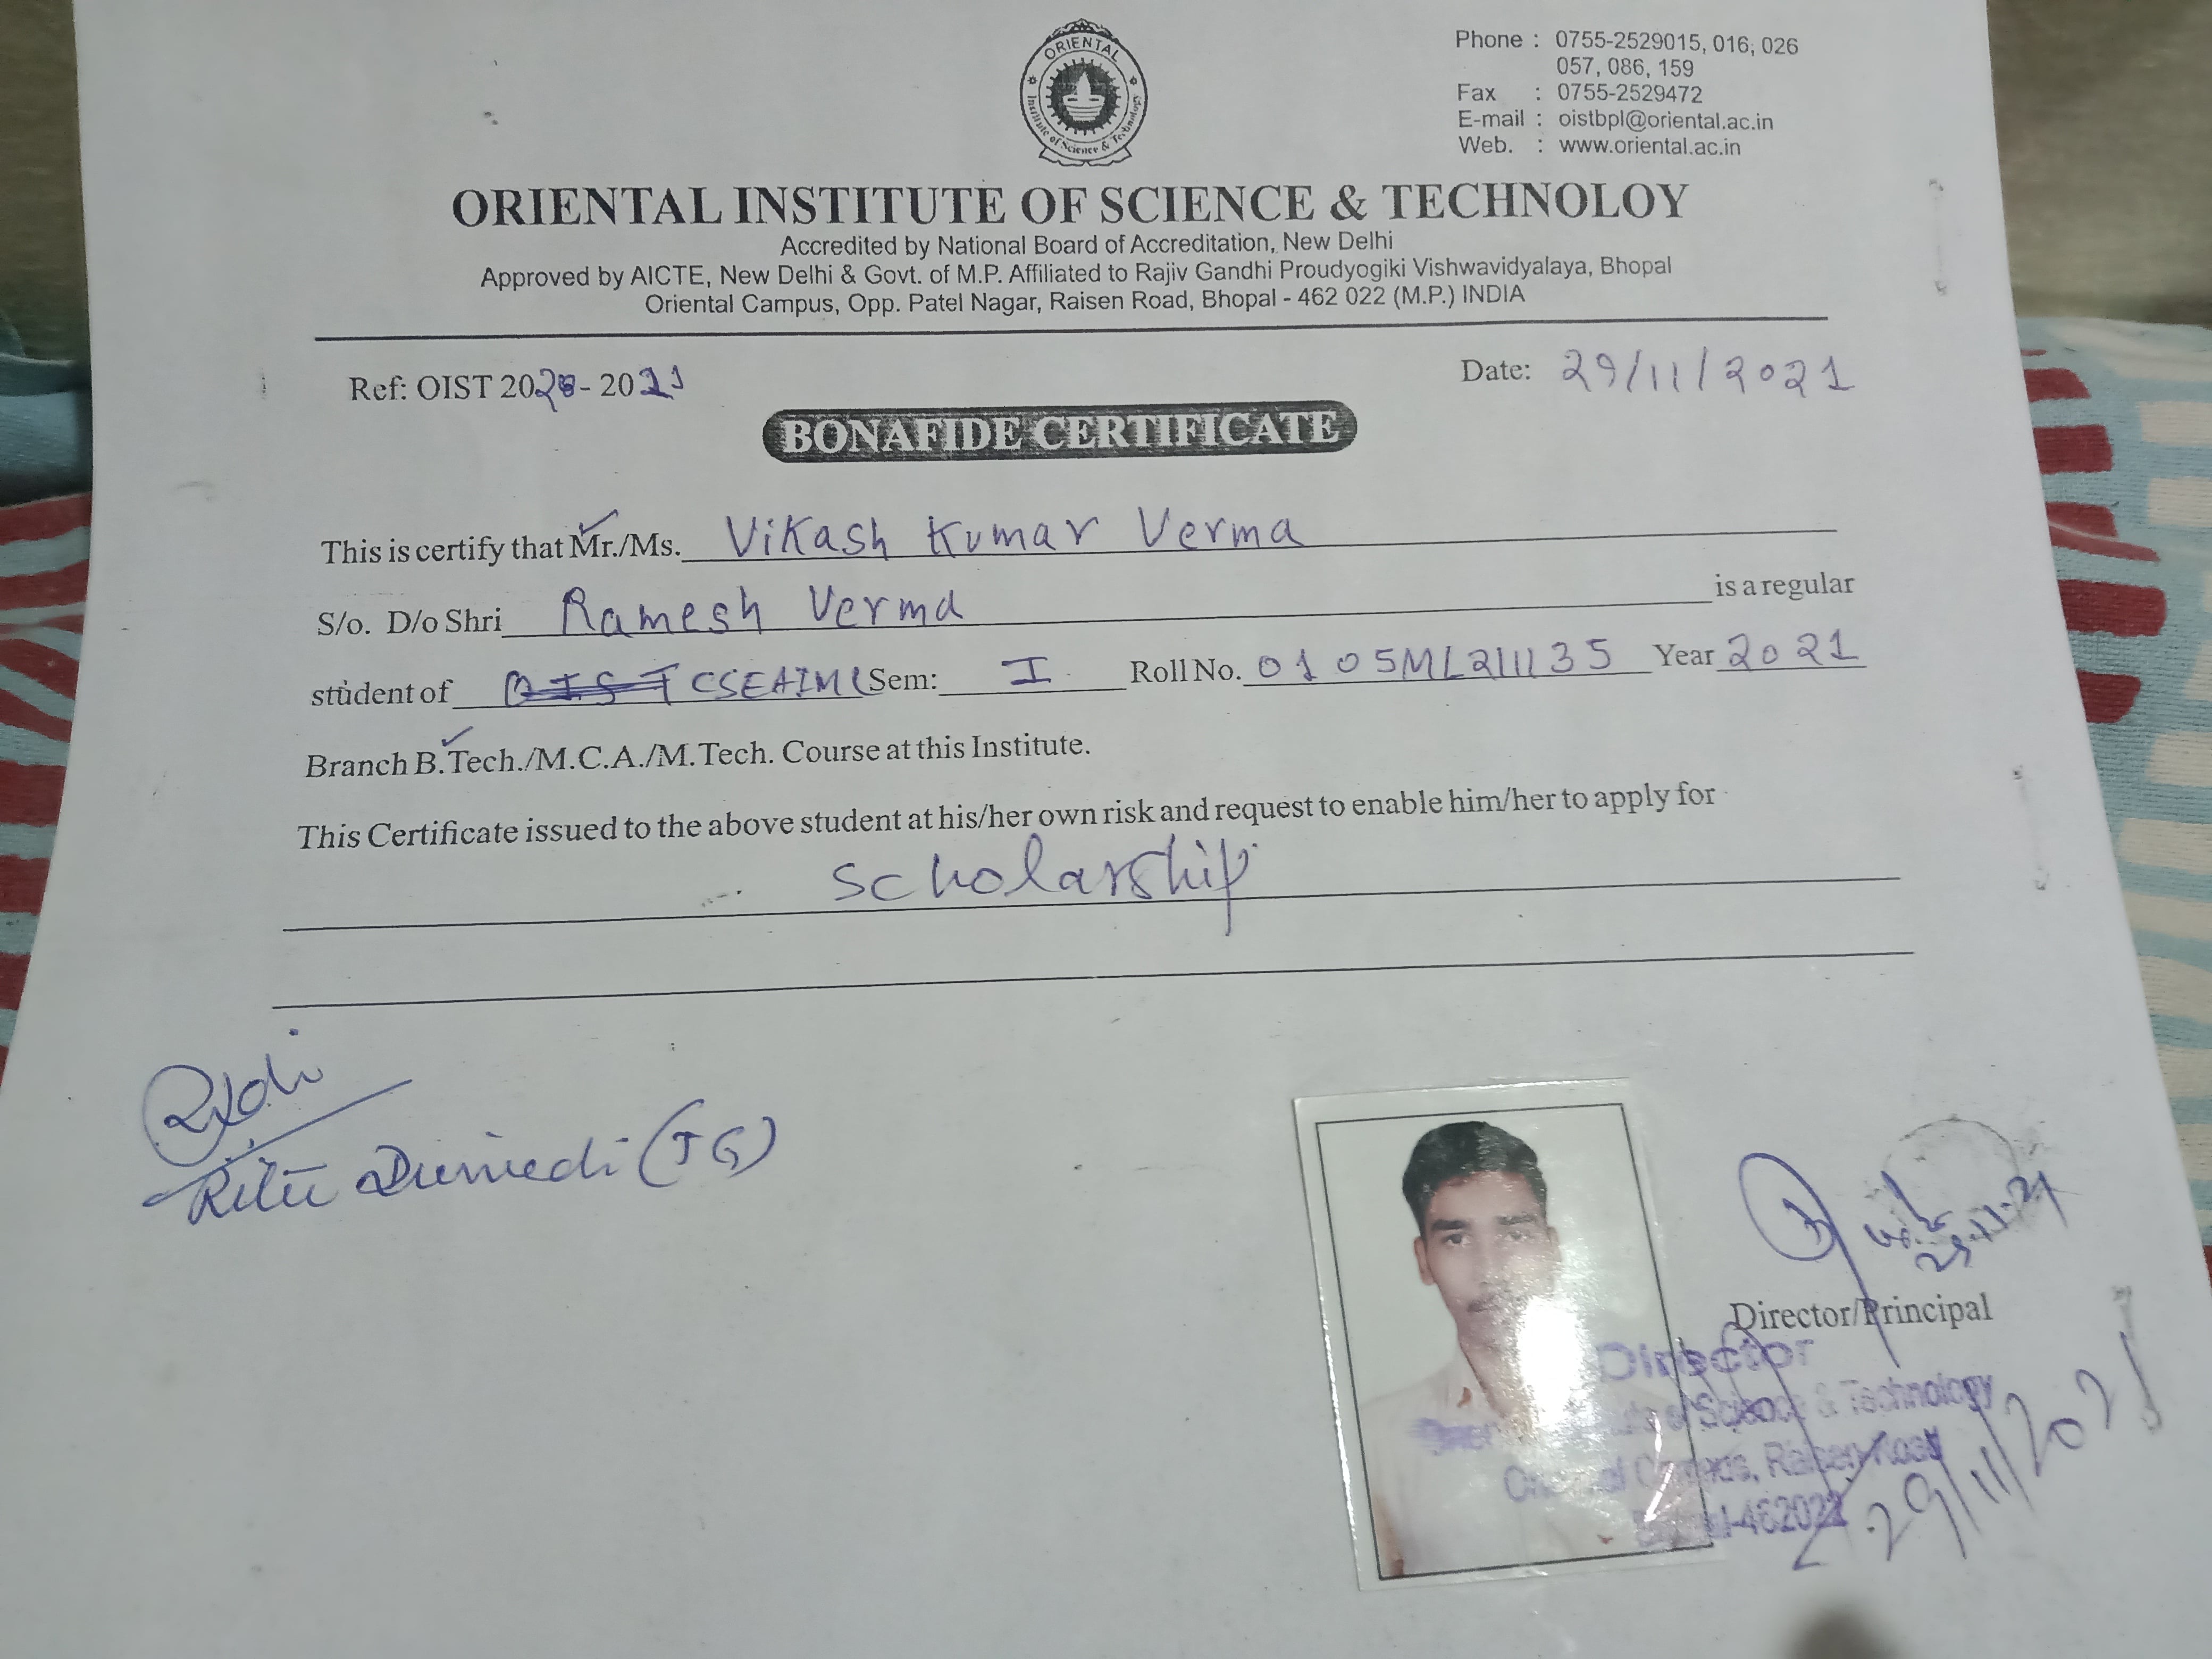 ORIENTAL
Institute of Science & Technology
Phone : 0755-2529015, 016, 026
057, 086, 159
Fax : 0755-2529472
E-mail : oistbpl@oriental.ac.in
Web. : www.oriental.ac.in
ORIENTAL INSTITUTE OF SCIENCE & TECHNOLOY
Accredited by National Board of Accreditation, New Delhi
Approved by AICTE, New Delhi & Govt. of M.P. Affiliated to Rajiv Gandhi Proudyogiki Vishwavidyalaya, Bhopal
Oriental Campus, Opp. Patel Nagar, Raisen Road, Bhopal - 462 022 (M.P.) INDIA
Ref: OIST 2020 - 2021
Date: 29/11/2021
BONAFIDE CERTIFICATE
This is certify that Mr./Ms. Vikash Kumar Verma
S/o. D/o Shri Ramesh Verma is a regular
student of CSEAIML Sem: I Roll No. 0105ML211135 Year 2021
Branch B.Tech./M.C.A./M.Tech. Course at this Institute.
This Certificate issued to the above student at his/her own risk and request to enable him/her to apply for
scholarship
Ritu Dwivedi (TG)
Director/Principal
Director
Science & Technology
Raisen Road
-462022
29/11/2021